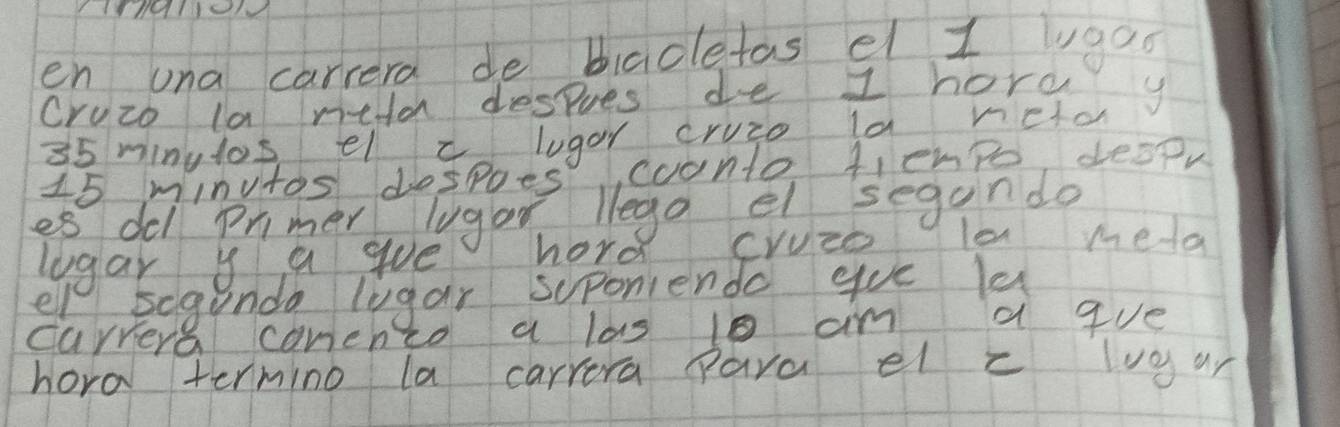 en una carrera de bicicletas el 1 lugar
Cruzo la meta despues de 1 hora y
35 minutos el 2 lugar cruzo la meta
15 minutos despoes cuanto tiempo despu
es del Primer lugar llego el segundo
lugar y a que hora cruzo la meta
el segundo lugar suponiendo que la
carrera comenzo a las 10 am a que
hora termino la carrera Para el 2 lugar